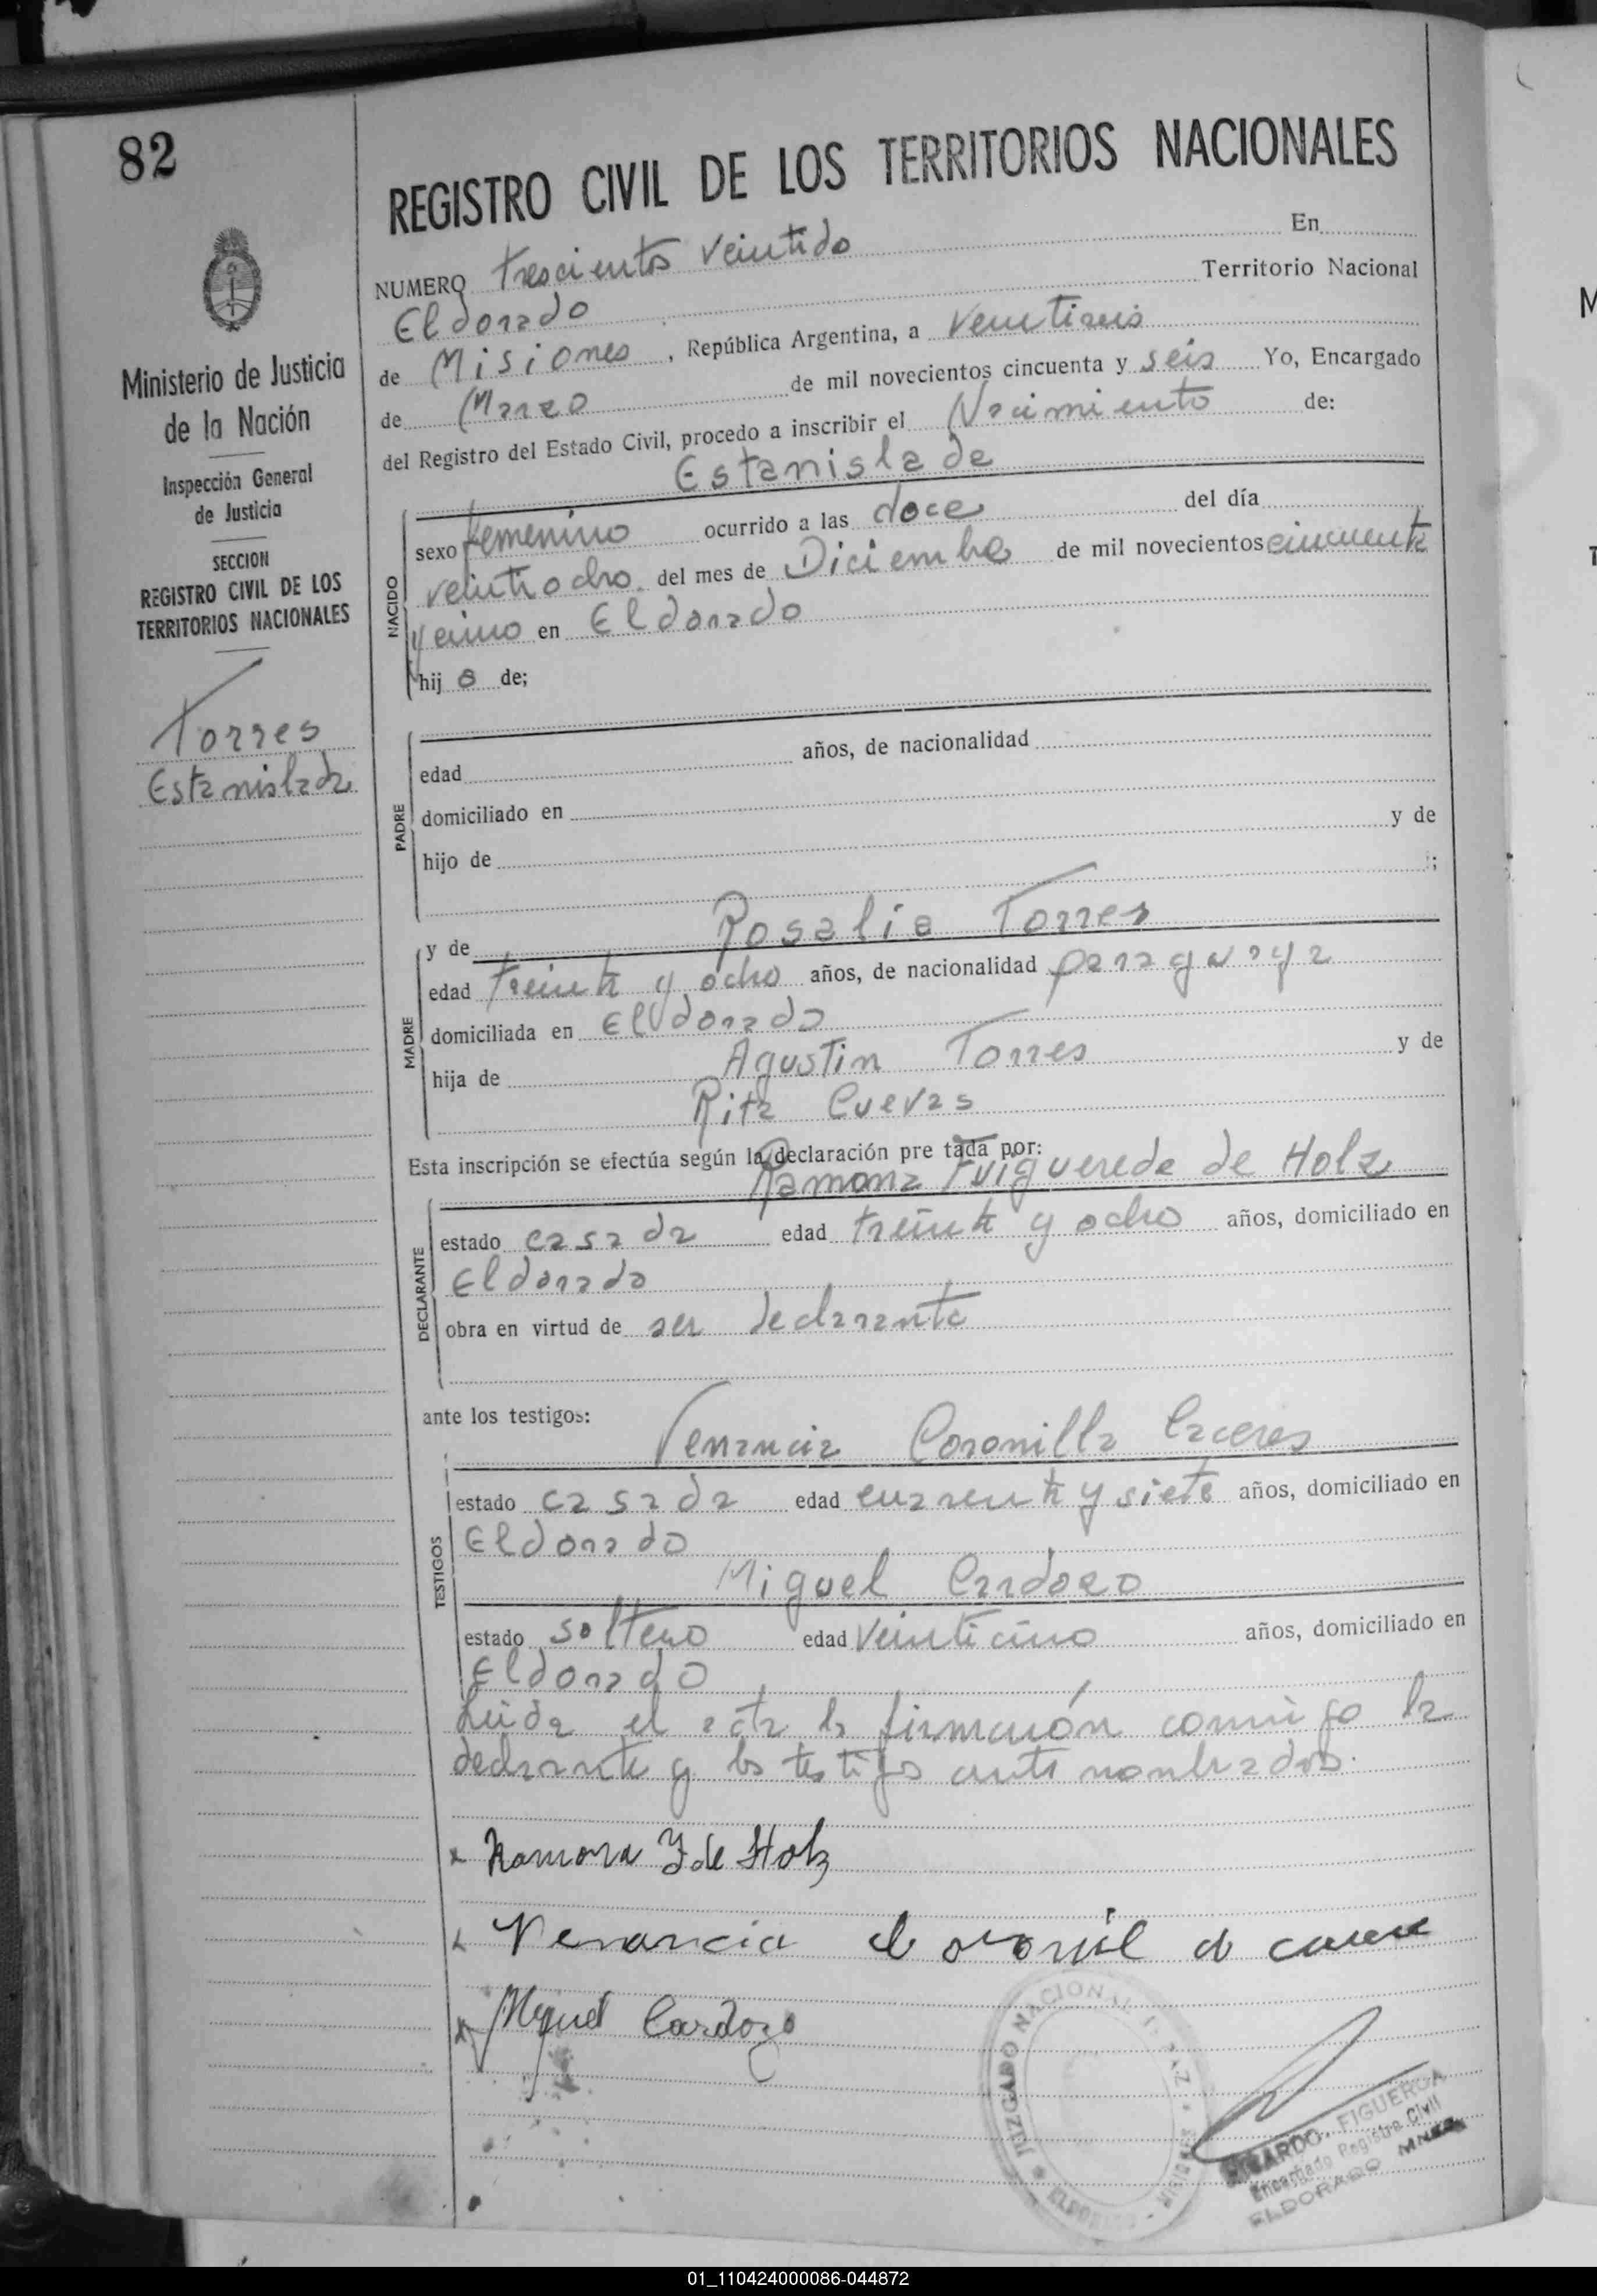 82
REGISTRO CIVIL DE LOS TERRITORIOS NACIONALES
NUMERO Trescientos Veintido En
Eldorado Territorio Nacional
de Misiones, República Argentina, a Veintiseis
de Marzo de mil novecientos cincuenta y seis Yo, Encargado
del Registro del Estado Civil, procedo a inscribir el Nacimiento de:
Estanislada
Ministerio de Justicia
de la Nación
Inspección General
de Justicia
SECCION
REGISTRO CIVIL DE LOS
TERRITORIOS NACIONALES
Torres
Estanislada
NACIDO
sexo femenino ocurrido a las doce del día
veintiocho del mes de Diciembre de mil novecientos cincuenta
y cinco en Eldorado
hij a de;
PADRE
edad años, de nacionalidad
domiciliado en
hijo de y de
;
MADRE
y de Rosalia Torres
edad treinta y ocho años, de nacionalidad paraguaya
domiciliada en Eldorado
hija de Agustin Torres y de
Rita Cuevas
Esta inscripción se efectúa según la declaración pre tada por:
Ramona Fuiguerede de Holz
DECLARANTE
estado casada edad treinta y ocho años, domiciliado en
Eldorado
obra en virtud de ser declarante
ante los testigos:
Venancia Coronilla Caceres
TESTIGOS
estado casada edad cuarenta y siete años, domiciliado en
Eldorado
Miguel Cardozo
estado soltero edad Veinticino años, domiciliado en
Eldorado
Leida el acta la firmarón comigo la
declarante y los testigos ante nombrados.
x Ramona F de Holz
x Venancia
x Miguel Cardozo
JUZGADO NACIONAL DE PAZ
ELDORADO - MISIONES
RICARDO FIGUEROA
Encargado Registro Civil
ELDORADO MNES.
01_110424000086-044872